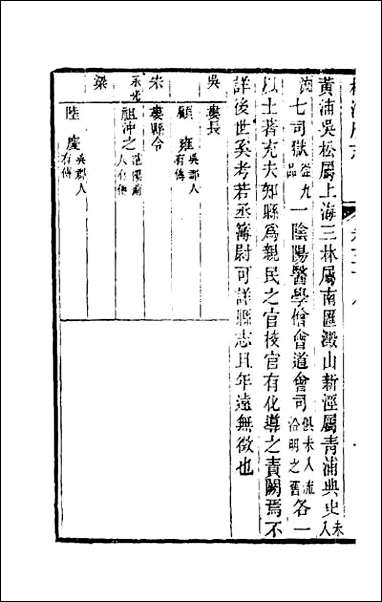 黄浦吳松屬上海三林屬南匯澱山新涇屬青浦典史未入
流七司獄從九品一陰陽醫學僧會道會司俱未入流沿明之舊各一
以土著充夫知縣爲親民之官校官有化導之責闕焉不
詳後世奚考若丞簿尉可詳縣志且年遠無徵也
吳
婁長
顧雍吳郡人有傳
宋
婁縣令
永光
祖沖之范陽薊人有傳
梁
陸慶吳郡人有傳